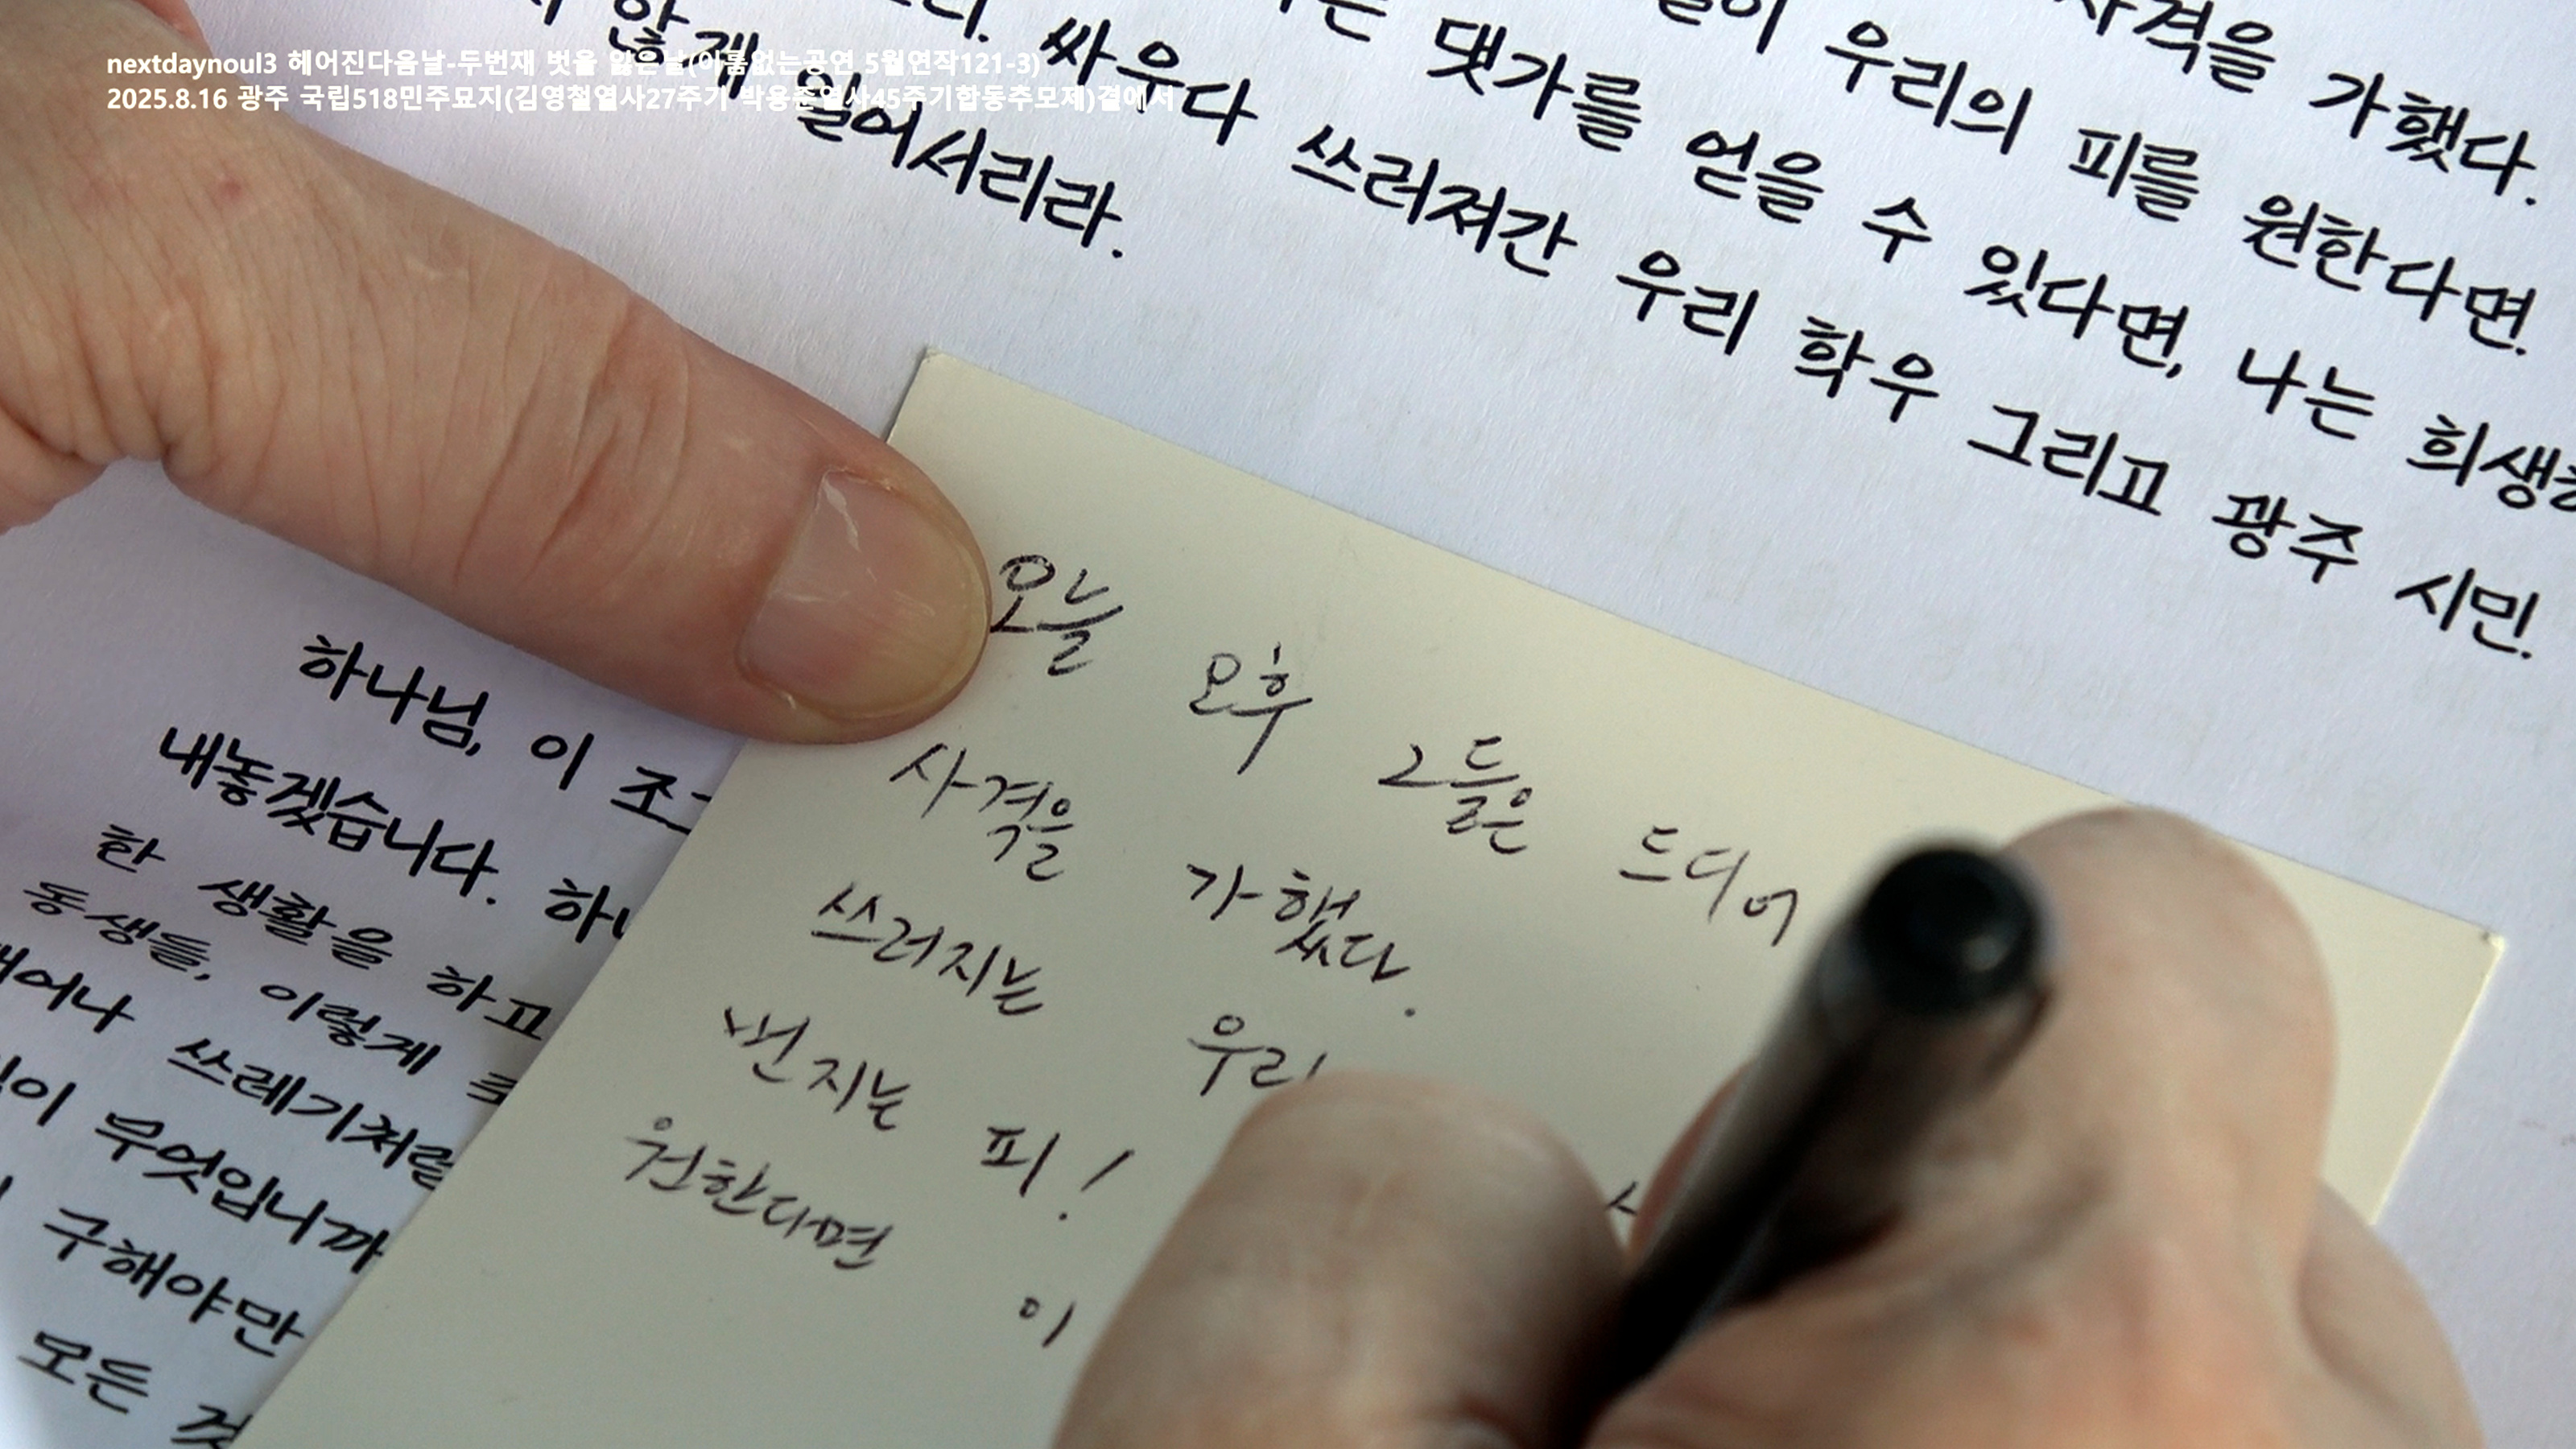 nextdaynoul3 헤어진다음날-두번재 벗을 잃은날(이룸없는공연 5월연작121-3)
2025.8.16 광주 국립518민주묘지(김영철열사27주기 박용준열사45주기합동추모제)곁에서
사격을 가했다.
우리의 피를 원한다면.
는 댓가를 얻을 수 있다면, 나는
싸우다 쓰러져간 우리 학우 그리고 광주 시민.
않게 일어서리라.
하나님, 이
내놓겠습니다.
한 생활을 하고
동생들, 이렇게
쓰레기처럼
무엇입니까
구해야만
모든
오늘 오후 그들은 드디어
사격을 가했다.
쓰러지는 우리
번지는 피!
원한다면 이